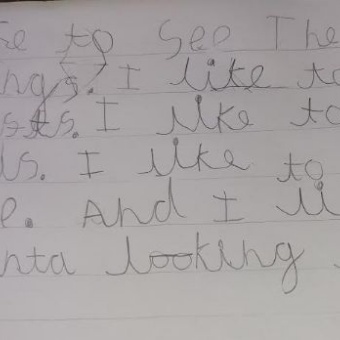 to see The
ngs. I like to
sts. I like to
ls. I like to
e. And I li
nta looking